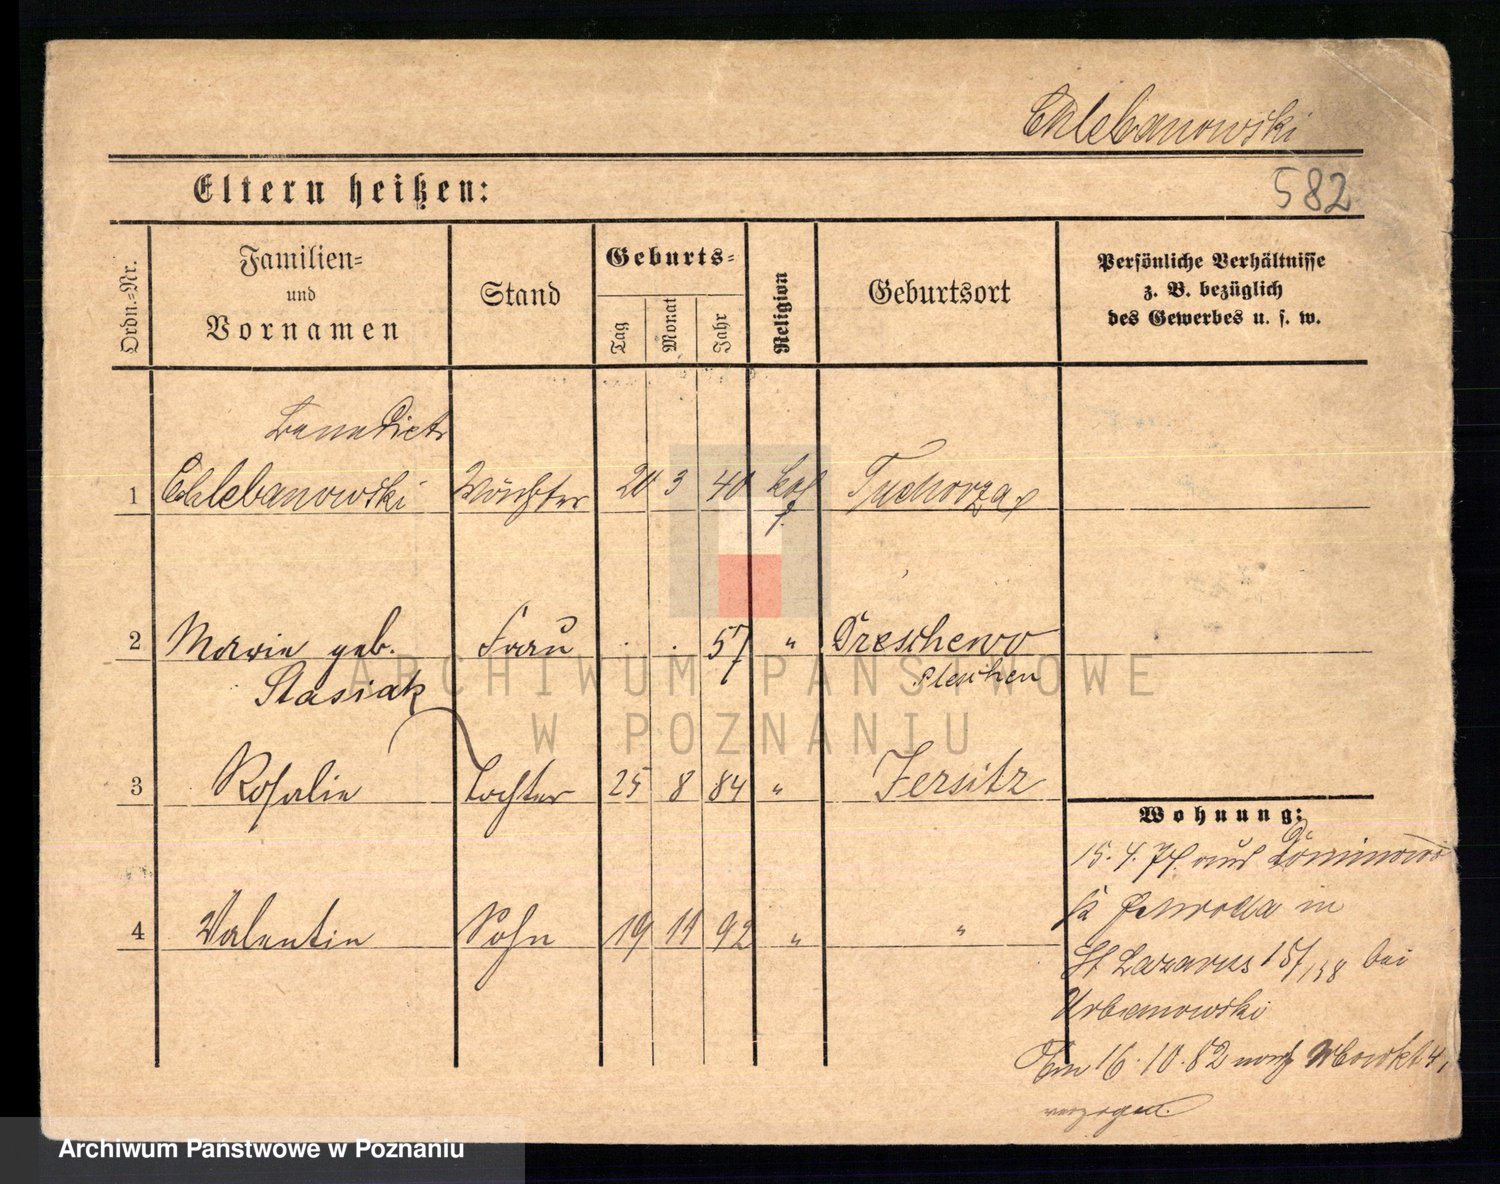 Chlebanowski
Eltern heißen:
582
Ordn.-Nr.
Familien-
und
Vornamen
Stand
Geburts-
Tag
Monat
Jahr
Religion
Geburtsort
Persönliche Verhältnisse
z. B. bezüglich
des Gewerbes u. s. w.
Benedict
1 Chlebanowski Wächter 20 3 40 kath. Tuchorza
2 Marie geb. Frau . . 57 " Dreschewo
Stasiak Pleschen
3 Rosalie Tochter 25 8 84 " Jersitz
4 Valentin Sohn 19 11 92 " "
Wohnung:
15. 4. 74. aus Dominowo
in
St Lazarus 15/158 bei
Urbanowski
Am 16. 10. 82 nach
verzogen.
ARCHIWUM PAŃSTWOWE
W POZNANIU
Archiwum Państwowe w Poznaniu